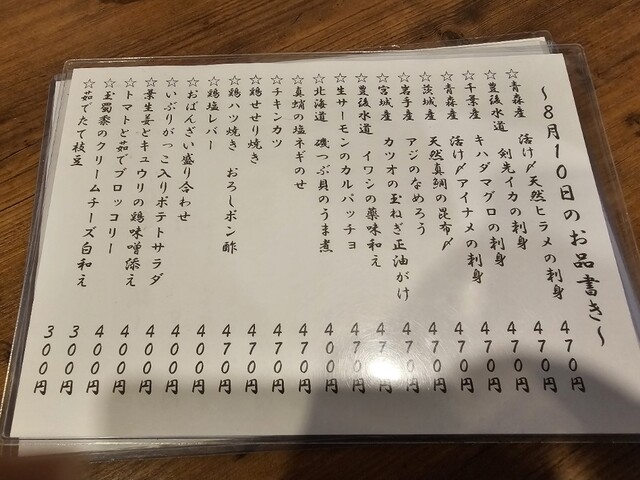 ～8月10日のお品書き～
☆青森産 活け〆天然ヒラメの刺身 470円
☆豊後水道 剣先イカの刺身 470円
☆千葉産 キハダマグロの刺身 470円
☆青森産 活け〆アイナメの刺身 470円
☆茨城産 天然真鯛の昆布〆 470円
☆岩手産 アジのなめろう 470円
☆宮城産 カツオの玉ねぎ正油がけ 470円
☆豊後水道 イワシの薬味和え 470円
☆生サーモンのカルパッチョ 470円
☆北海道 磯つぶ貝のうま煮 400円
☆真蛸の塩ネギのせ 470円
☆チキンカツ 470円
☆鶏せせり焼き 470円
☆鶏ハツ焼き おろしポン酢 470円
☆鶏塩レバー 400円
☆おばんざい盛り合わせ 400円
☆いぶりがっこ入りポテトサラダ 400円
☆葉生姜とキュウリの鶏味噌添え 400円
☆トマトと茹でブロッコリー 400円
☆玉蜀黍のクリームチーズ白和え 300円
☆茹でたて枝豆 300円